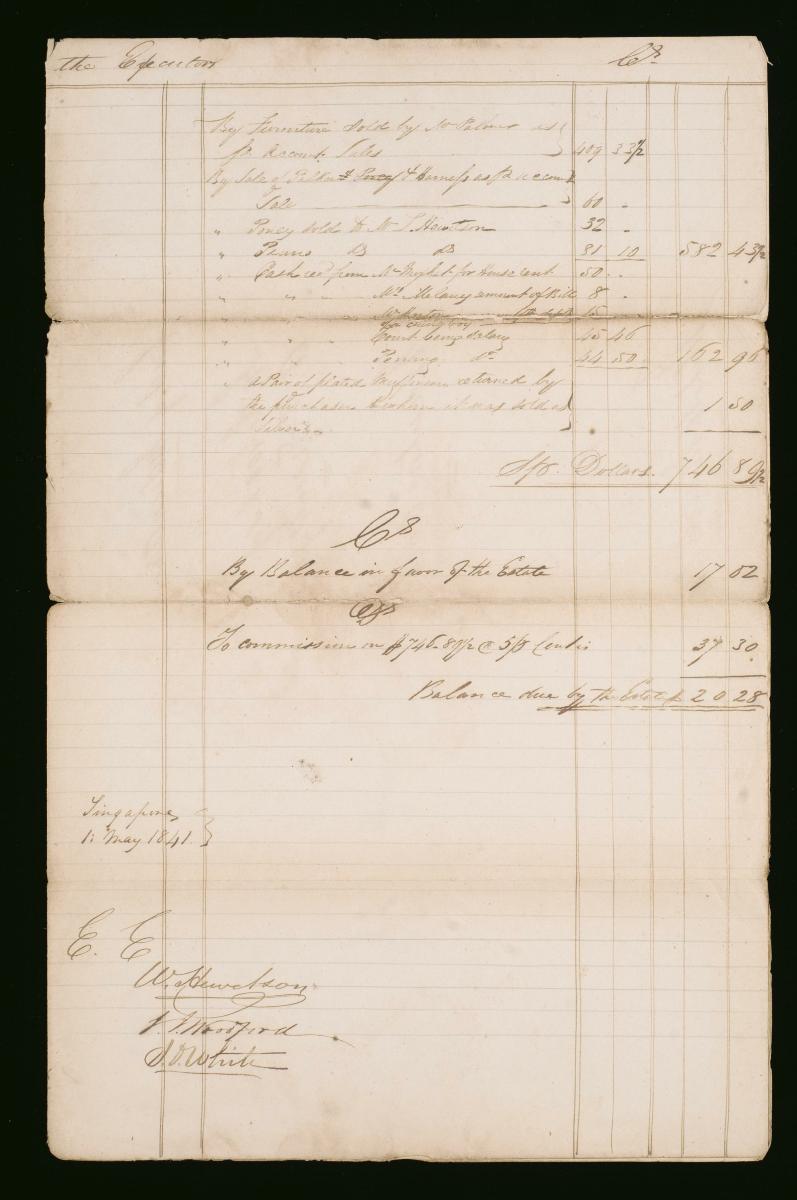 the Executors Cr
By Furniture sold by Mr Palmer as
pr Account Sales 409 33 1/2
By Sale of & Poney & Harness as pr accont
Sale 60 .
" Poney sold to Mr T. Hewetson 32 .
" Piano Do Do 81 10 582 43 1/2
" Cash recd from Mr for House rent 50 . .
" " " Mr amount of Bill 8 .
15
Court being salary 45 46
" " " Do 44 50 162 96
" a Pair of plated returned by
the purchaser to whom it was sold as
Silver 1 50
Spr. Dollars. 746 89 1/2
Cr
By Balance in favor of the Estate 17 02
Dr
To commission on $ 746.89 1/2 @ 5 pr Cent is 37 30
Balance due by the Estate $ 20 28
Singapore
1: May 1841.
E. E
W. Hewetson
Woodford
White